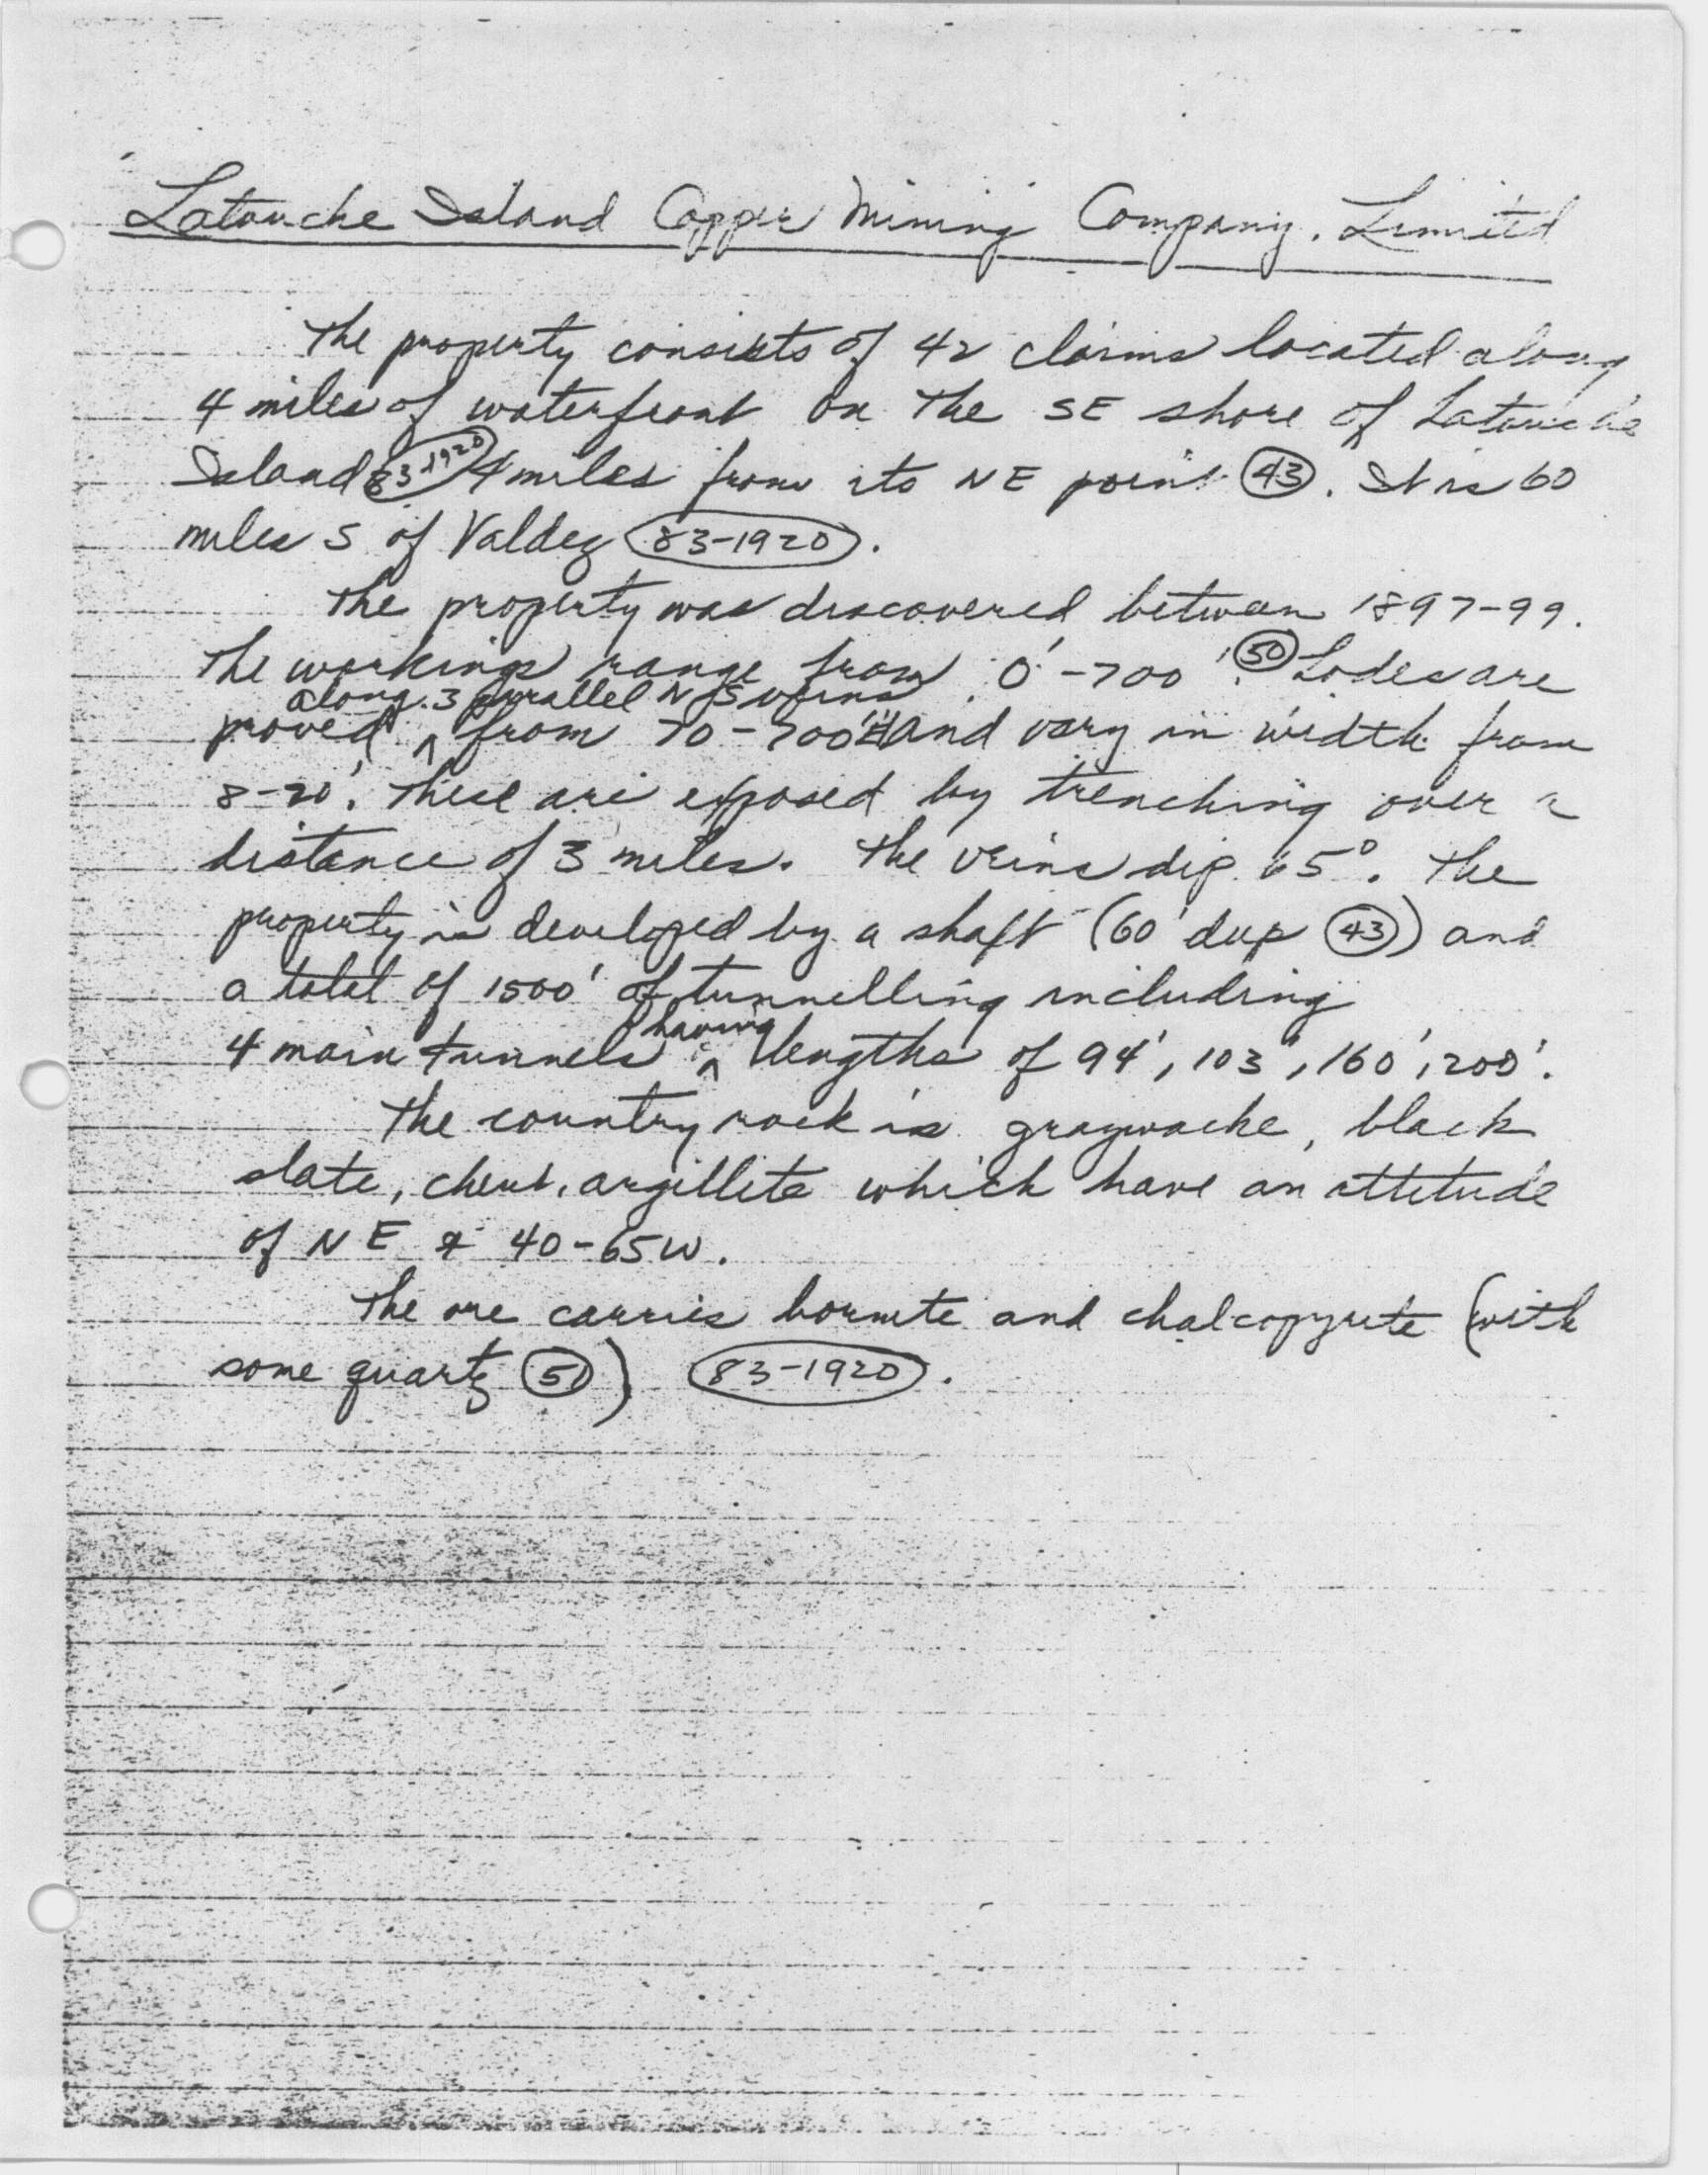 Latouche Island Copper Mining Company, Limited
The property consists of 42 claims located along
4 miles of waterfront on the SE shore of Latouche
Island 83-1920 4 miles from its NE point 43. It is 60
miles S of Valdez 83-1920.
The property was discovered between 1897-99.
The workings range from 0'-700' 50. Lodes are
along 3 parallel N S veins
proved ^ from 70-700' and vary in width from
8-20'. These are exposed by trenching over a
distance of 3 miles. The veins dip 65°. The
property is developed by a shaft (60' deep 43) and
a total of 1500' of tunnelling including
having
4 main tunnels ^ lengths of 94', 103', 160', 200'.
The country rock is graywacke, black
slate, chert, argillite which have an attitude
of NE & 40-65W.
The ore carries bornite and chalcopyrite (with
some quartz 50) 83-1920.